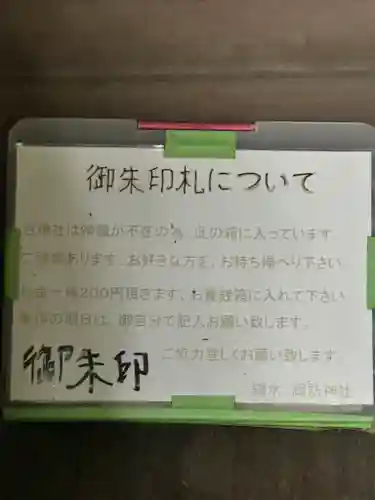 御朱印札について
当神社は神職が不在の為、此の箱に入っています。
二種類あります。お好きな方を、お持ち帰へり下さい。
料金一種200円頂きます。お賽銭箱に入れて下さい。
の期日は、御自分で記入お願い致します。
ご協力宜しくお願い致します。
御朱印
諏訪神社